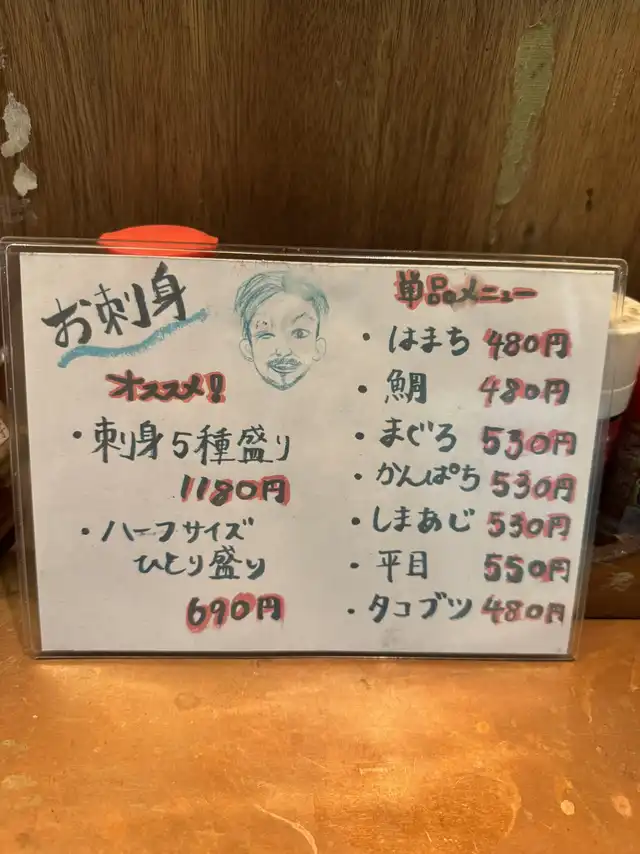 お刺身
オススメ!!
・刺身5種盛り
1180円
・ハーフサイズ
ひとり盛り
690円
単品メニュー
・はまち 480円
・鯛 480円
・まぐろ 530円
・かんぱち 530円
・しまあじ 530円
・平目 550円
・タコブツ 480円